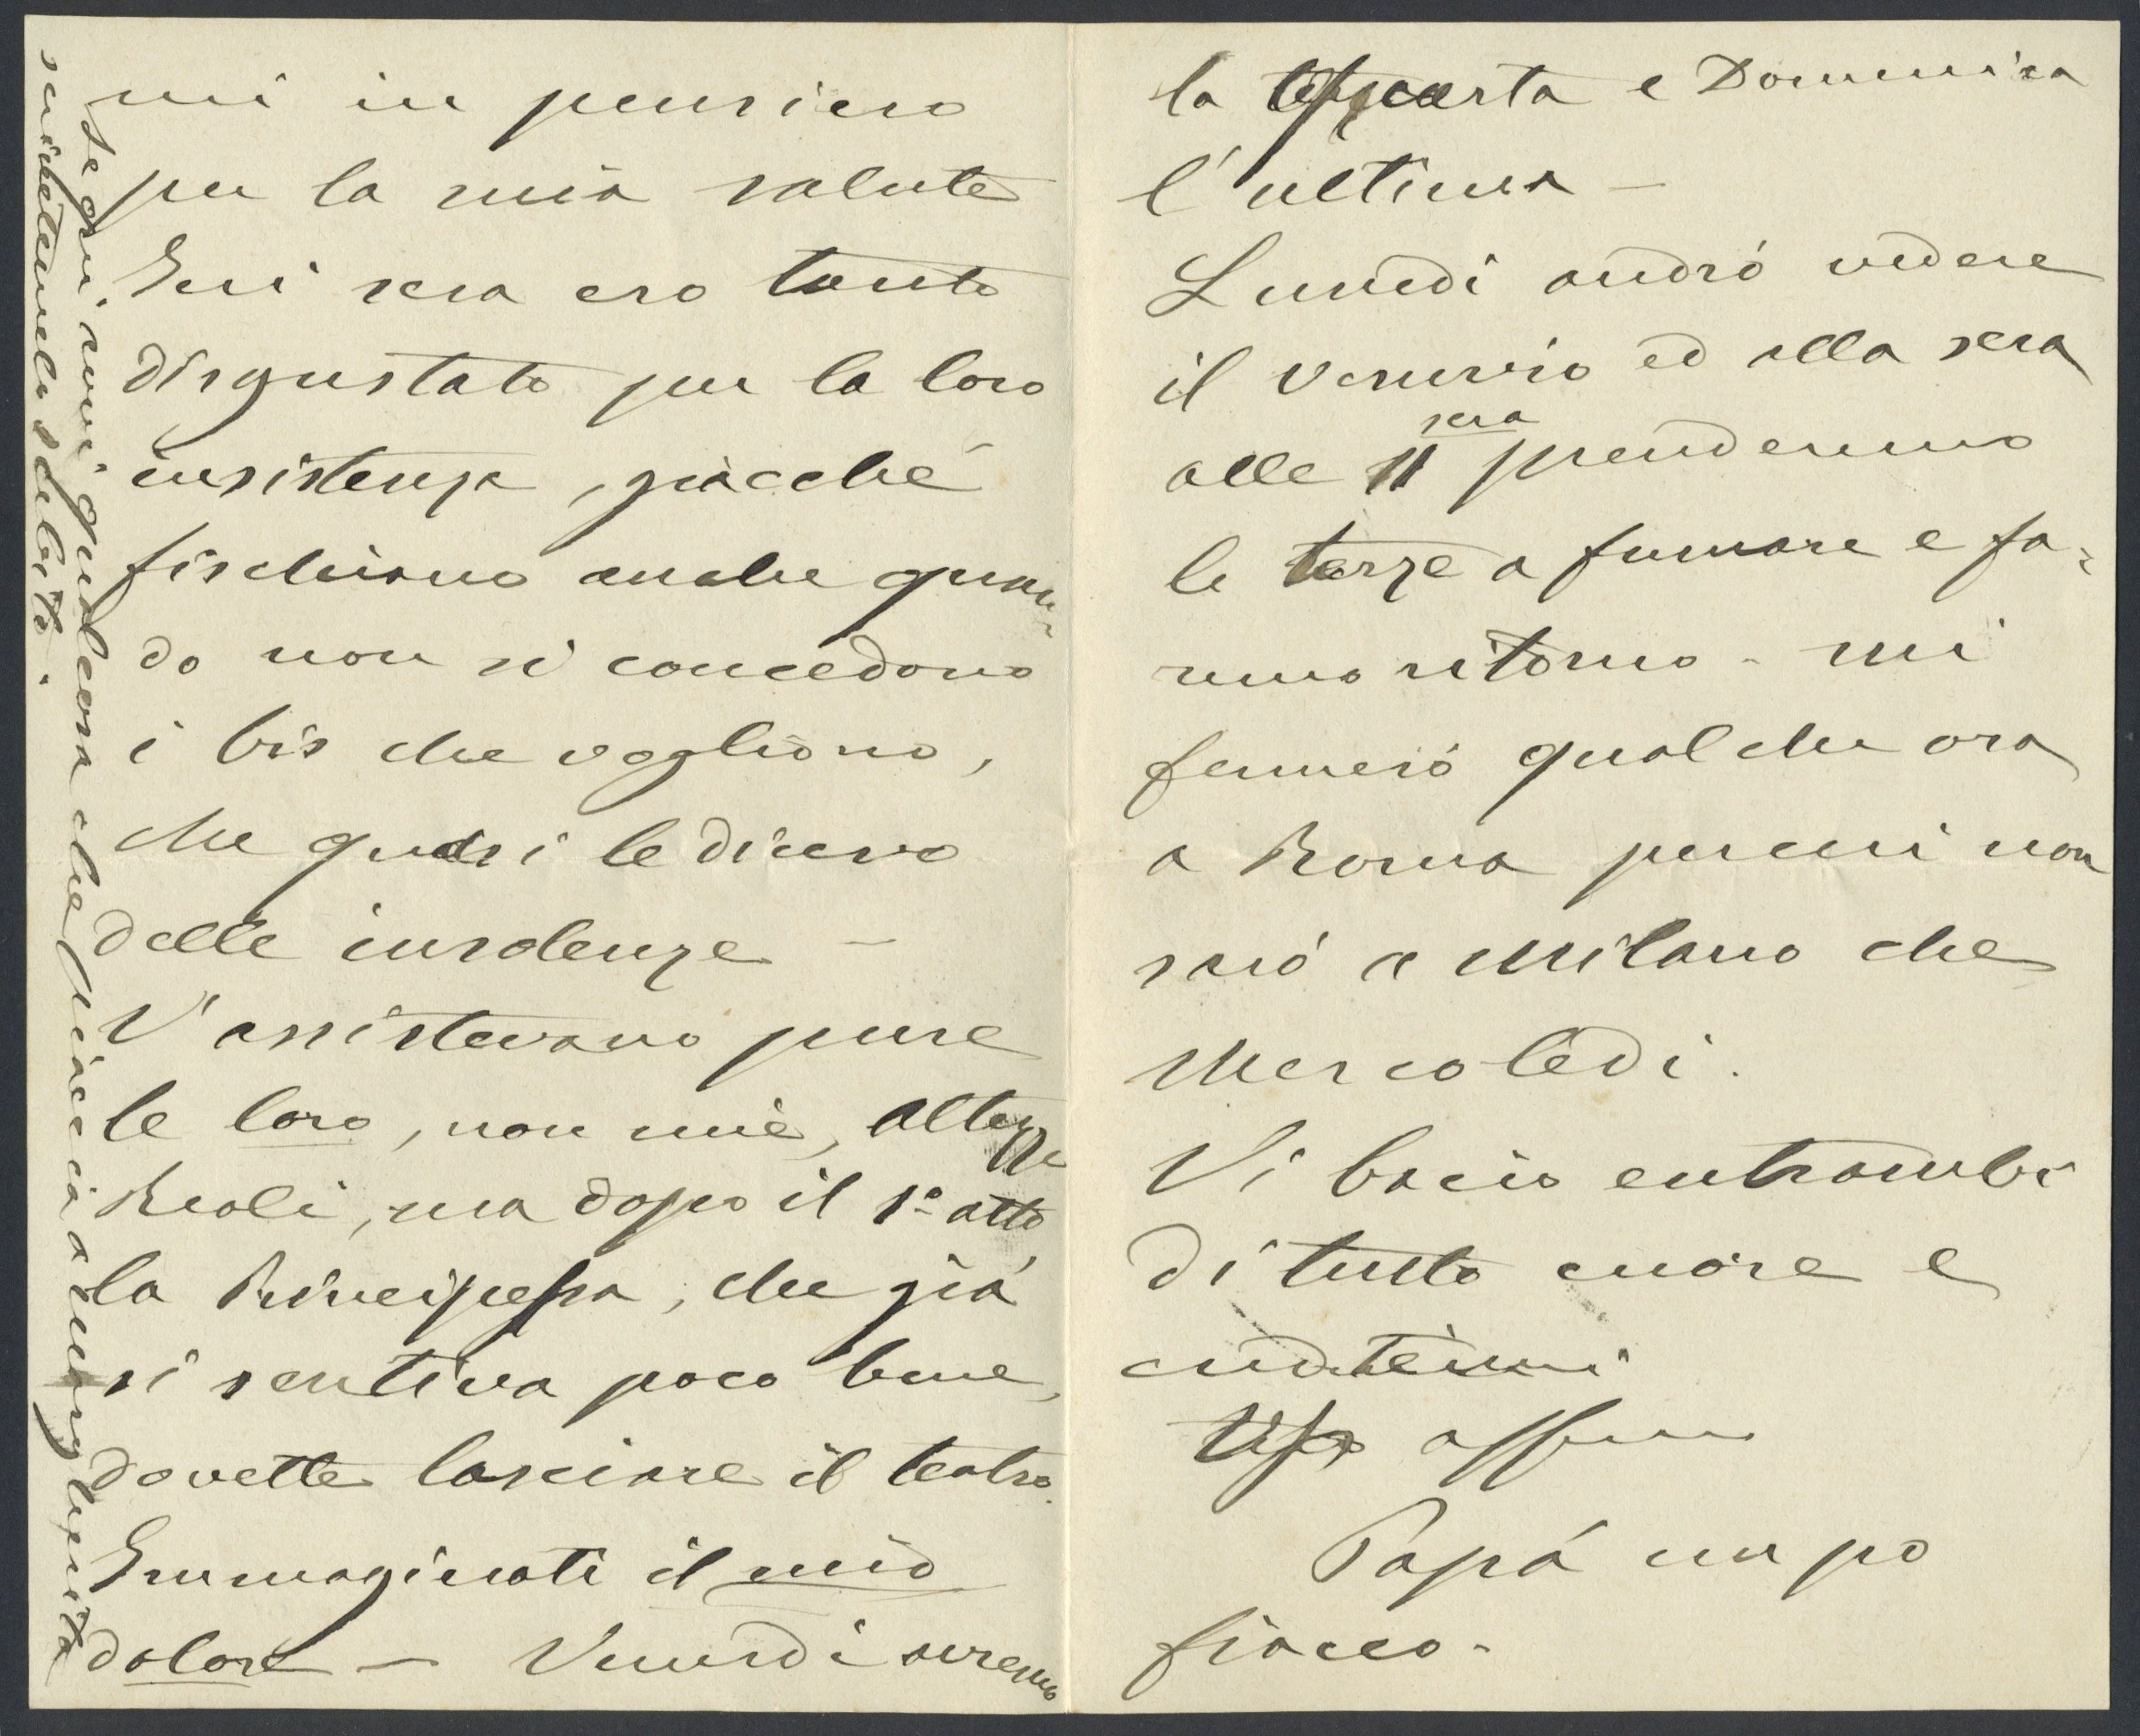 mi in pensiero
per la mia salute
Ieri sera ero tanto
disgustato per la loro
insistenza, giacchè
fischiano anche quan-
do non si concedono
i bis che vogliono,
che quasi le dicevo
delle insolenze —
V'assistevano pure
le loro, non mie, altezze
Reali, ma dopo il 1º atto
la Principessa, che già
si sentiva poco bene,
dovette lasciare il teatro.
Immaginati il mio
dolore — Venerdi avremo
la quarta e Domenica
l'ultima —
Lunedi andrò vedere
il Vesuvio ed alla sera
alle 11 sera prenderemo
le terze a fumare e fa-
remo ritorno - mi
fermerò qualche ora
a Roma per cui non
sarò a Milano che
Mercoledi.
Vi bacio entrambi
di tutto cuore e
credetemi
Vostro affmo
Papà un po
fiacco -
Se qui vuoi qualcosa che piaccia a
scrivetemelo subito.